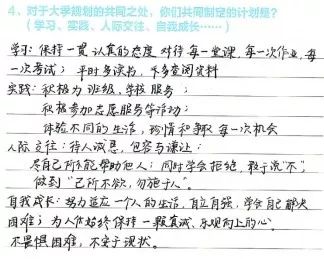 4、对于大学规划的共同之处，你们共同制定的计划是？
（学习、实践、人际交往、自我成长……）
学习：保持一贯认真的态度对待每一堂课，每一次作业，每
一次考试；平时多读书，多查阅资料
实践：积极为班级、学校服务；
积极参加志愿服务等活动；
体验不同的生活，珍惜和争取每一次机会
人际交往：待人诚恳，包容与谦让；
尽自己所能帮助他人；同时学会拒绝，敢于说“不”，
做到“己所不欲，勿施于人”。
自我成长：努力适应一个人的生活，自立自强，学会自己解决
困难；为人始终保持一颗真诚、乐观向上的心。
不畏惧困难，不安于现状。